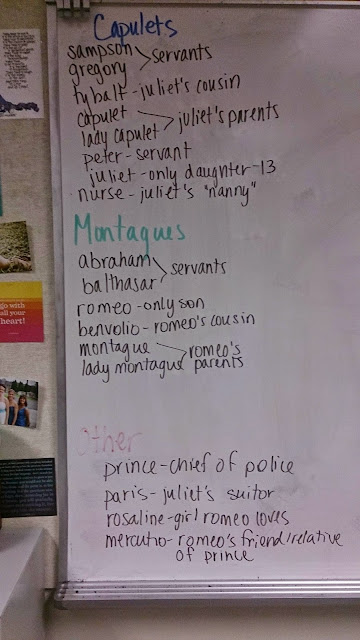 Capulets
sampson
gregory > servants
tybalt - juliet's cousin
capulet
lady capulet > juliet's parents
peter - servant
juliet - only daughter - 13
nurse - juliet's "nanny"
Montagues
abraham
balthasar > servants
romeo - only son
benvolio - romeo's cousin
montague > romeo's
lady montague parents
Other
prince - chief of police
paris - juliet's suitor
rosaline - girl romeo loves
mercutio - romeo's friend/relative
of prince
go with
all your
heart!